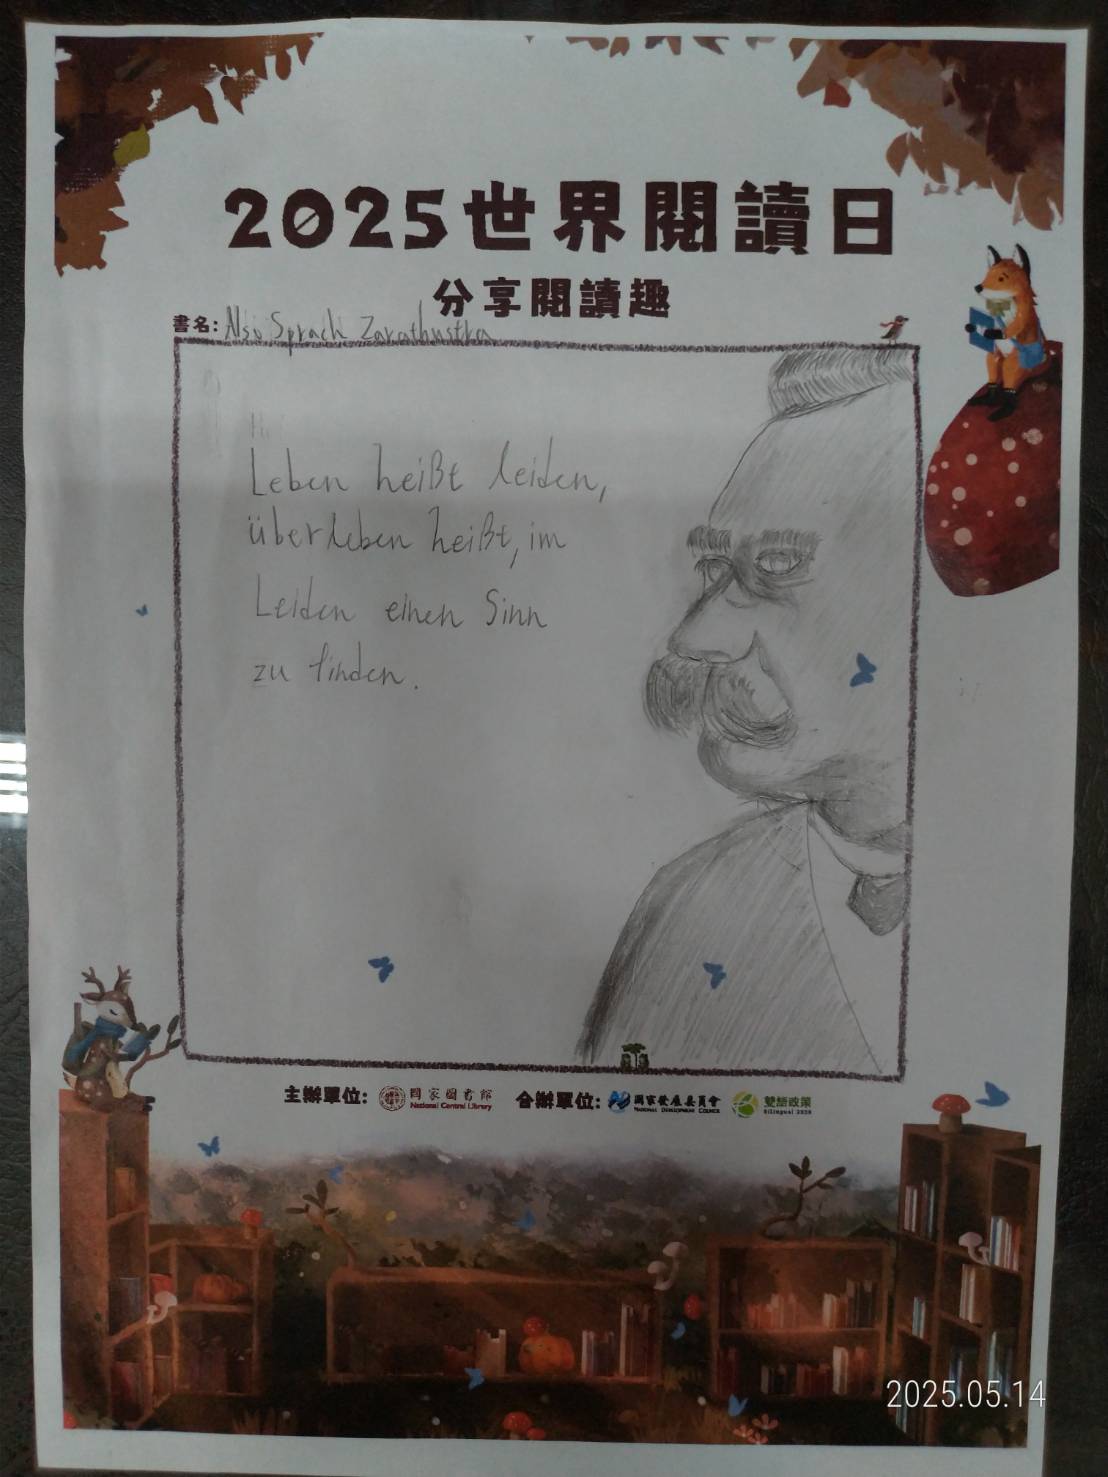 2025世界閱讀日
分享閱讀趣
書名: Also Sprach Zarathustra
Leben heißt leiden,
überleben heißt, im
Leiden einen Sinn
zu finden.
主辦單位: 國家圖書館 National Central Library 合辦單位: 國家發展委員會 NATIONAL DEVELOPMENT COUNCIL 雙語政策 Bilingual 2030
2025.05.14